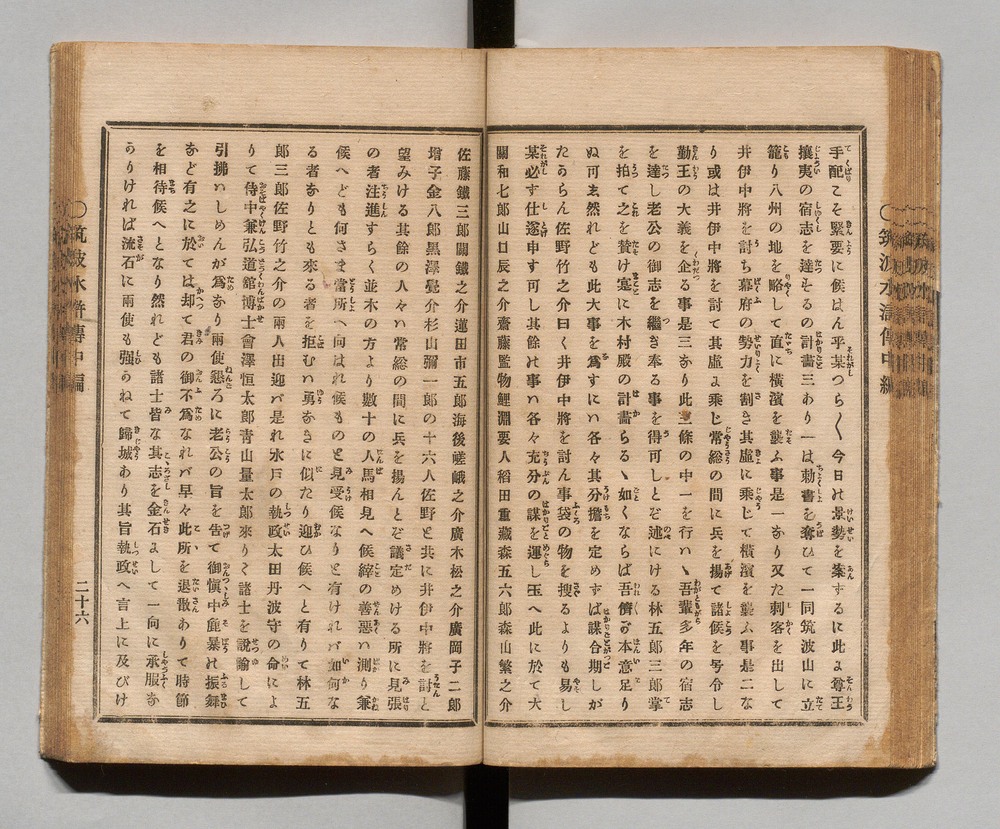 手配こそ緊要に候はん乎某つら〱今日の景勢を案するに此よ尊王
攘夷の宿志を達そるの計畵三あり一は勅書を奪ひて一同筑波山に立
籠り八州の地を略して直に横濱を襲ふ事是一なり又た刺客を出して
井伊中將を討ち幕府の勢力を割き其虛に乘じて横濱を襲ふ事是二な
り或は井伊中將を討て其虛よ乘し常総の間に兵を揚て諸候を号令し
勤王の大義を企る事是三なり此三條の中一を行ハヽ吾輩多年の宿志
を達し老公の御志を繼き奉る事を得可しとど述にける林五郎三郎掌
を拍て之を賛け寔に木村殿の計畵らるヽ如くならば吾儕が本意足り
ぬ可ゑ然れども此大事を爲すにハ各々其分擔を定めすば謀合期しが
たからん佐野竹之介曰く井伊中將を討ん事袋の物を搜るよりも易し
某必す仕遂申す可し其餘の事ハ各々充分の謀を運し玉へ此に於て大
關和七郎山口辰之介齋藤監物鯉淵要人稻田重藏森五六郎森山繁之介
佐藤鐵三郎關鐵之介蓮田市五郎海後嵯峨之介廣木松之介廣岡子二郎
增子金八郎黒澤覺介杉山彌一郎の十六人佐野と共に井伊中將を討と
望みける其餘の人々ハ常総の間に兵を揚んとぞ議定めける所に見張
の者注進すらく並木の方より數十の人馬相見へ候縡の善惡ハ測り兼
候へども何さま當所へ向はれ候ものと見受候なりと有けれバ如何な
る者なりとも來る者を拒むハ勇なきに似たり迎ひ候へと有りて林五
郎三郎佐野竹之介の兩人出迎バ是れ水戸の執政太田丹波守の命によ
りて侍中兼弘道舘博士會澤恒太郎青山量太郎來りく諸士を說諭して
引拂ハしめんが爲なり兩使懇ろに老公の旨を告て御愼中麁暴の振舞
など有之に於ては却て君の御不爲なれバ早々此所を退散ありて時節
を相待候へとなり然れども諸士皆な其志を金石よして一向に承服な
かりければ流石に兩使も強かねて歸城あり其旨執政へ言上に及びけ
〇筑波水滸傳中編
〇筑波水滸傳中編
二十六